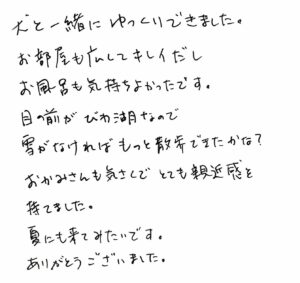 犬と一緒にゆっくりできました。
お部屋も広してキレイだし
お風呂も気持ちよかったです。
目の前がびわ湖なので
雪がなければもっと散歩できたかな？
おかみさんも気さくでとても親近感を
持てました。
夏にも来てみたいです。
ありがとうございました。